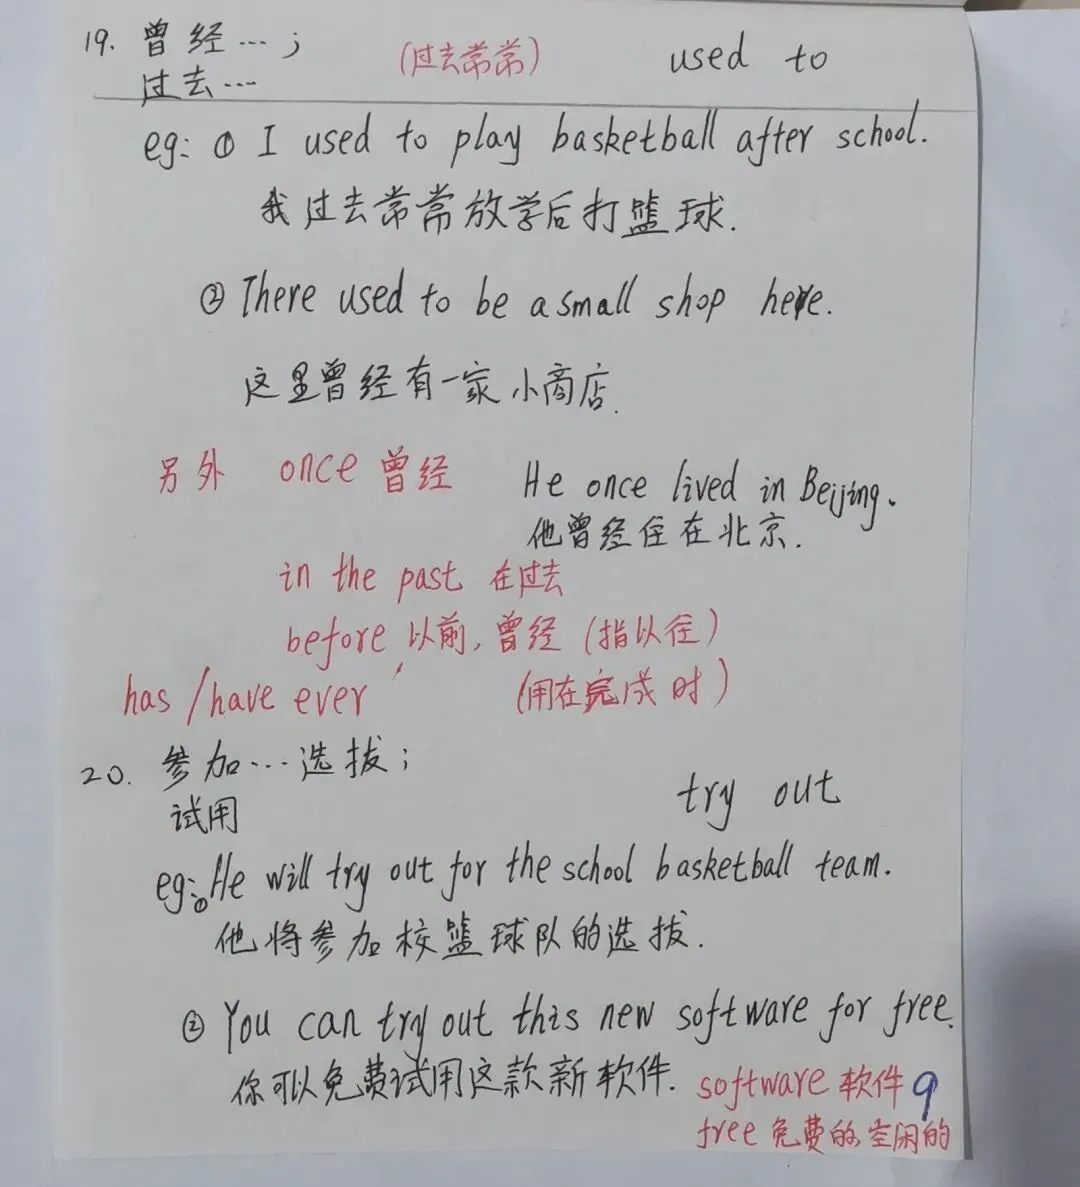 19. 曾经…; (过去常常) used to
过去…
eg: ① I used to play basketball after school.
我过去常常放学后打篮球.
② There used to be a small shop here.
这里曾经有一家小商店.
另外 once 曾经 He once lived in Beijing.
他曾经住在北京.
in the past 在过去
before 以前, 曾经 (指以往)
has /have ever (用在完成时)
20. 参加…选拔; try out
试用
eg: ① He will try out for the school basketball team.
他将参加校篮球队的选拔.
② You can try out this new software for free.
你可以免费试用这款新软件. software 软件 9
free 免费的, 空闲的